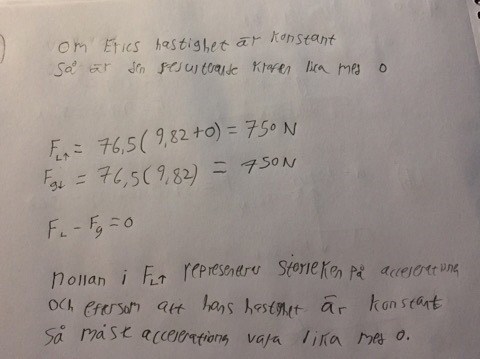 Om Erics hastighet är konstant
Så är den resulterande kraften lika med 0
F_L↑ = 76,5(9,82+0) = 750N
F_g↓ = 76,5(9,82) = 750N
F_L - F_g = 0
Nollan i F_L↑ representerar storleken på accelerationen
Och eftersom att hans hastighet är konstant
Så måste accelerationen vara lika med 0.